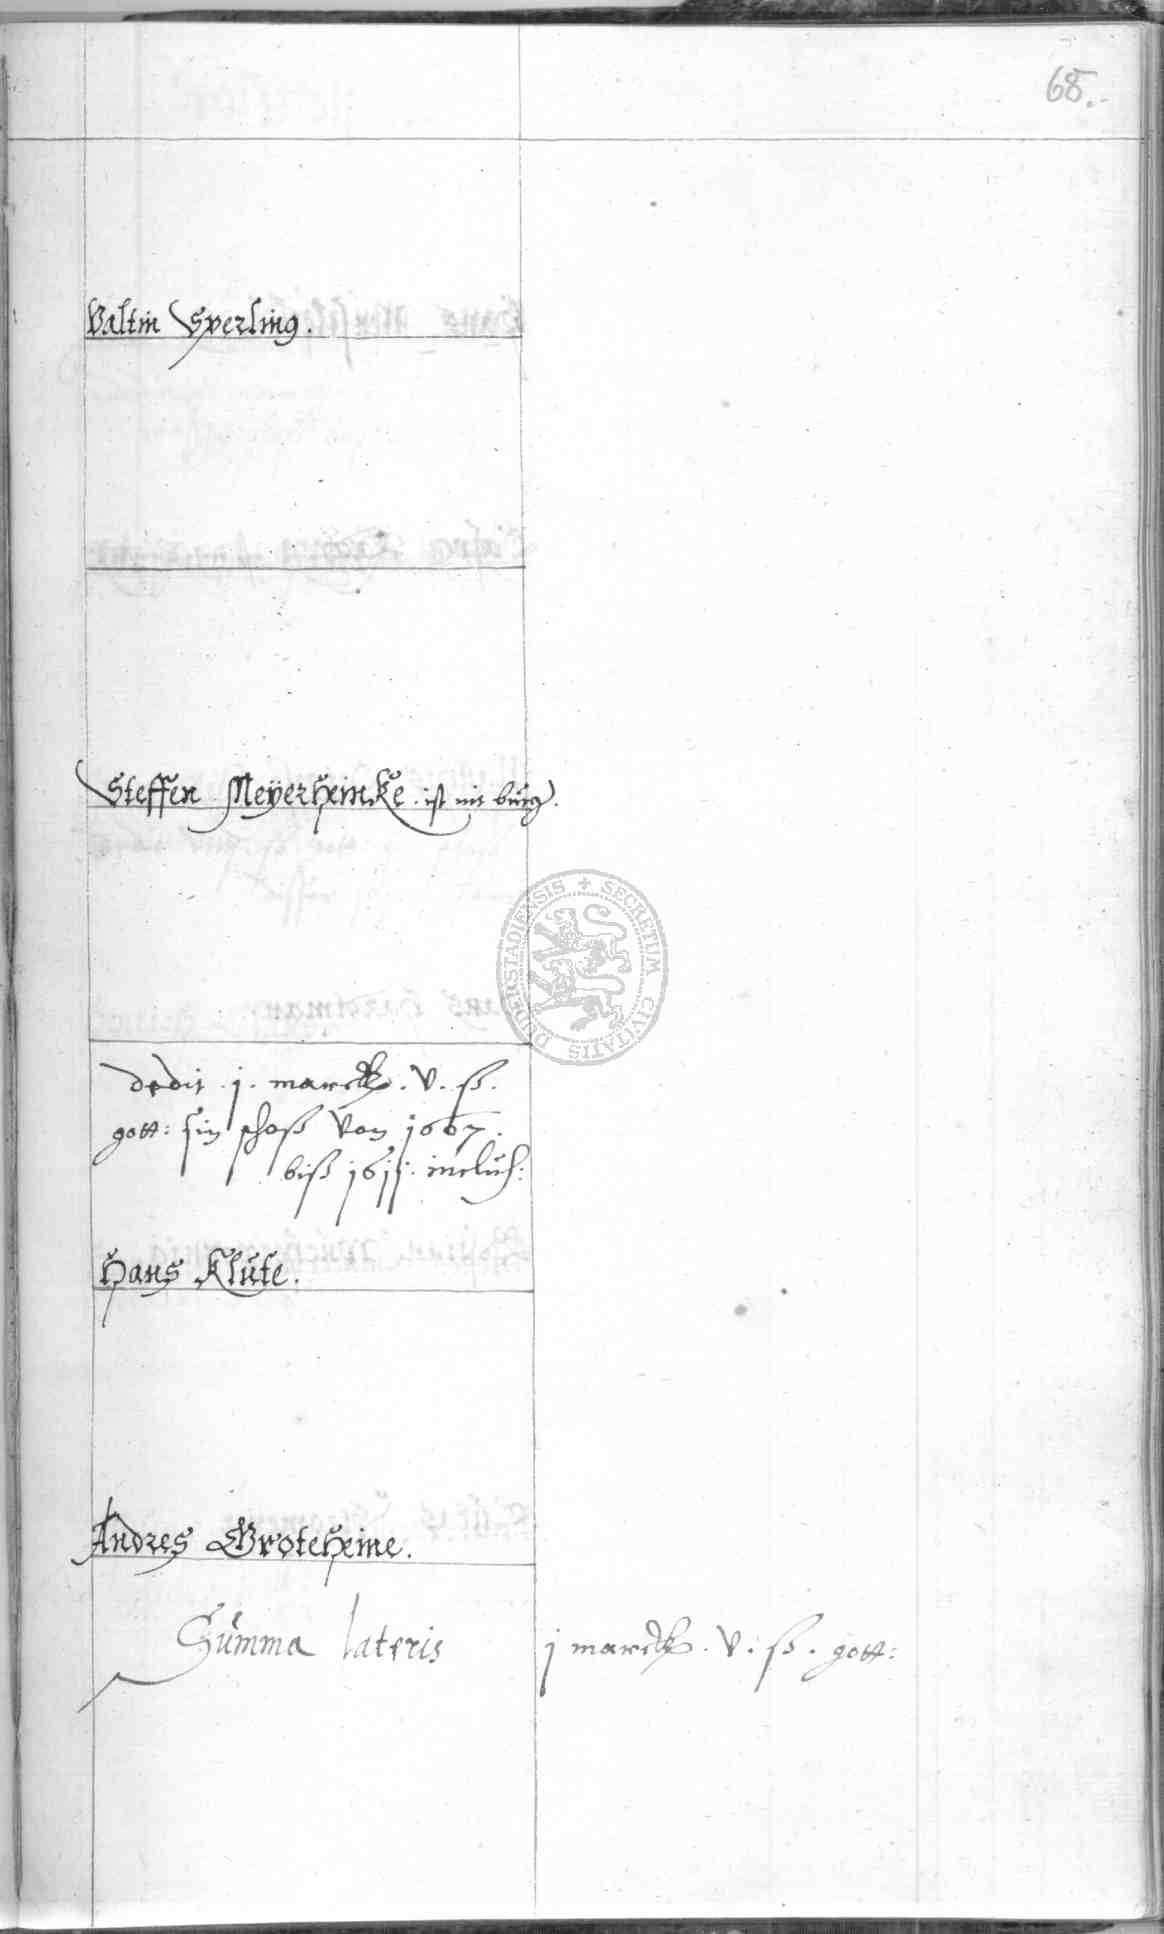 68.
Valtin Sperling.
Steffen Meÿerheincke. ist nit burg.
dedit . j . marck . V . ß .
gott: sin schoß Von 1607.
biß 1611. inclus:
Hans Klute.
Andres Groteheine.
Summa lateris j marck . V . ß . gott:
SECRETUM CIVITATIS DUDERSTADIENSIS